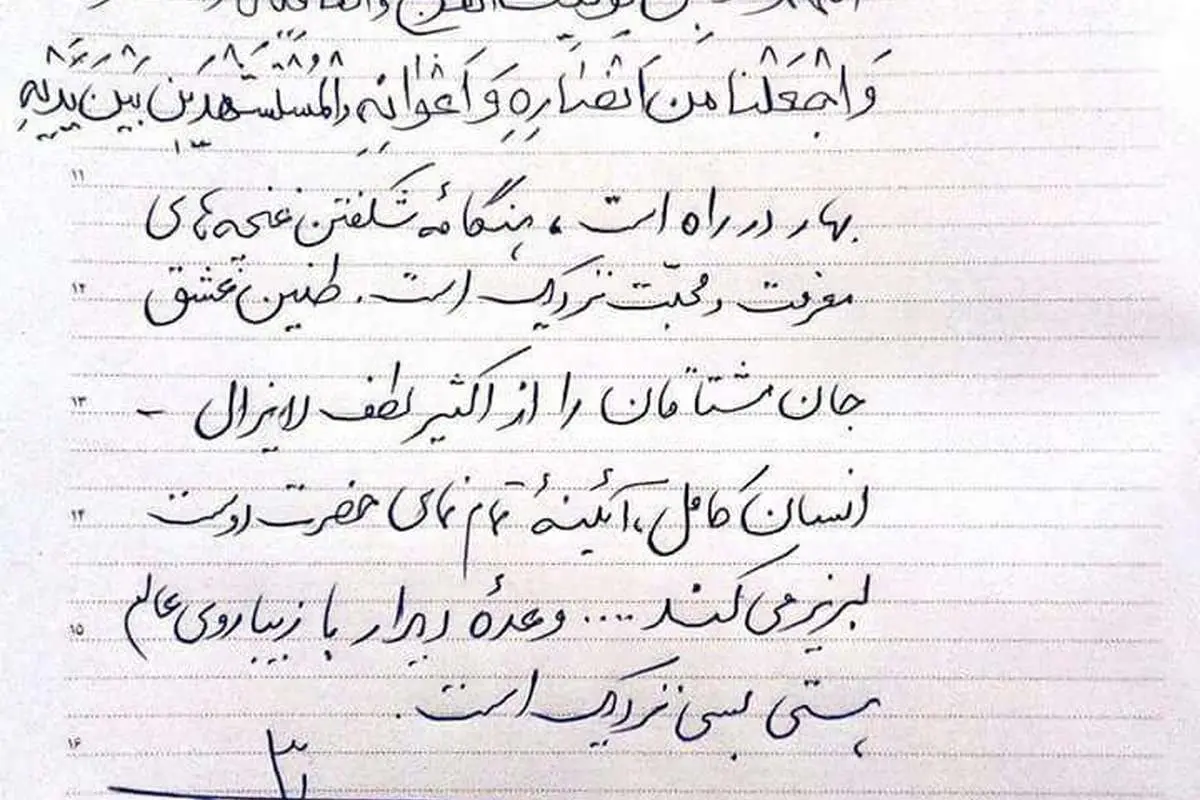 وَ اجْعَلْنا مِن اَنْصارِهِ وَ اَعْوانِهِ وَالْمُسْتَشْهَدِينَ بَيْنَ يَدَيْهِ
۱۱
بهار در راه است ، هنگامهٔ شکفتن غنچه های
۱۲
معرفت و محبّت نزدیک است. طنین عشق
۱۳
جان مشتاقان را از اکثیر لطف لایزال –
۱۴
انسان کامل، آئینهٔ تمام نمای حضرت دوست
۱۵
لبریز می کند .... وعدهٔ دیدار با زیباروی عالم
هستی بسی نزدیک است.
۱۶